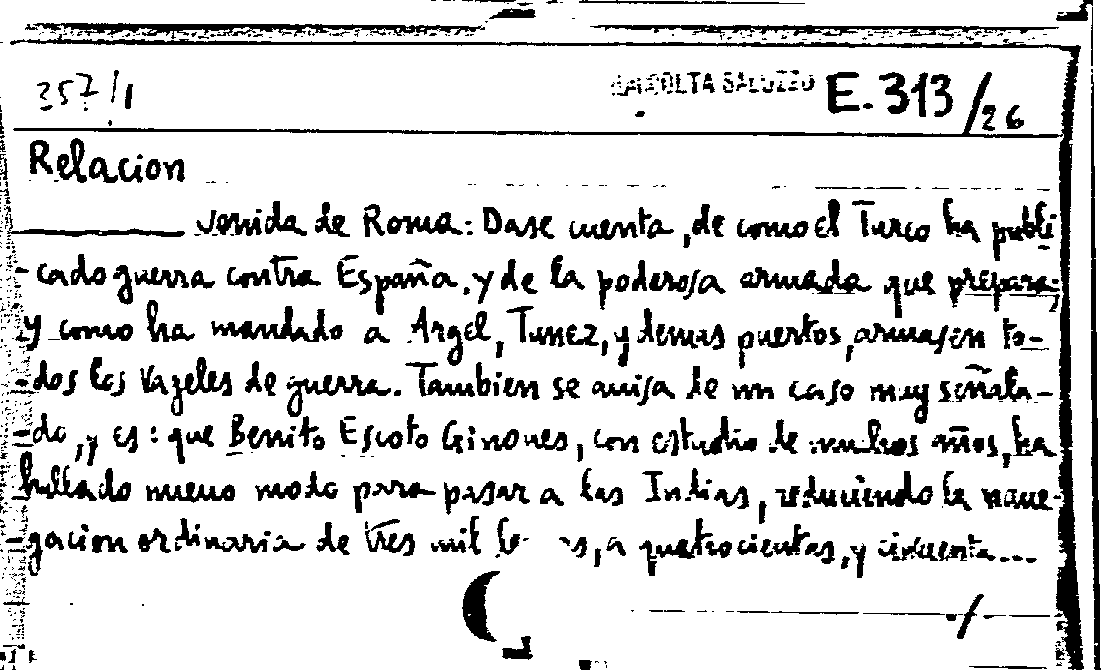 357/1
RACCOLTA SALUZZO E. 313/26
Relacion
venida de Roma: Dase cuenta, de como el Turco ha publi
-cado guerra contra España, y de la poderosa armada que prepara;
y como ha mandado a Argel, Tunez, y demas puertos, armasen to-
-dos los vazeles de guerra. Tambien se avisa de un caso muy señala-
-do, y es: que Benito Escoto Ginoves, con estudio de muchos años, ha
hallado nuevo modo para pasar a las Indias, reduciendo la nave-
-gacion ordinaria de tres mil a quatrocientas, y cincuenta...
./